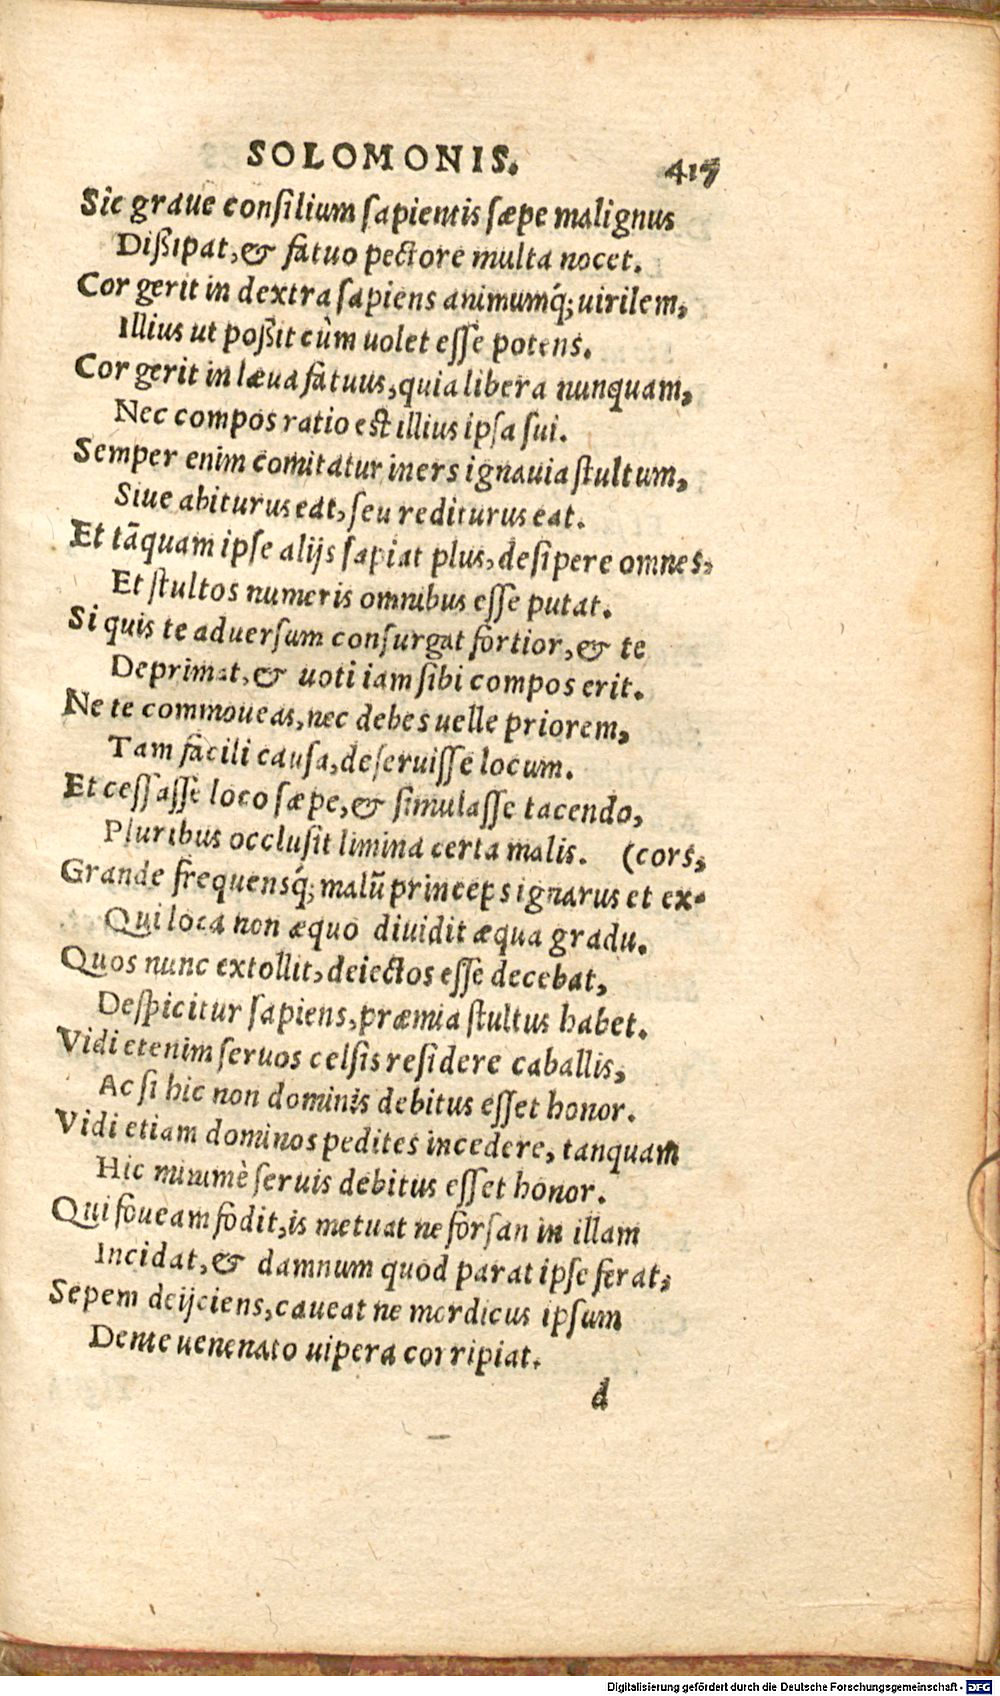 SOLOMONIS. 417
Sic graue consilium sapientis sæpe malignus
Dißipat, & fatuo pectore multa nocet.
Cor gerit in dextra sapiens animumq́; uirilem,
Illius ut poßit cùm uolet esse potens.
Cor gerit in læua fatuus, quia libera nunquam,
Nec compos ratio est illius ipsa sui.
Semper enim comitatur iners ignauia stultum,
Siue abiturus eat, seu rediturus eat.
Et tãquam ipse alijs sapiat plus, desipere omnes,
Et stultos numeris omnibus esse putat.
Si quis te aduersum consurgat fortior, & te
Deprimat, & uoti iam sibi compos erit.
Ne te commoueas, nec debes uelle priorem,
Tam facili causa, deseruisse locum.
Et cessasse loco sæpe, & simulasse tacendo,
Pluribus occlusit limina certa malis. (cors,
Grande frequensq́; malũ princeps ignarus et ex-
Qui loca non æquo diuidit æqua gradu.
Quos nunc extollit, deiectos esse decebat,
Despicitur sapiens, præmia stultus habet.
Vidi etenim seruos celsis residere caballis,
Ac si hic non dominis debitus esset honor.
Vidi etiam dominos pedites incedere, tanquam
Hic minimè seruis debitus esset honor.
Qui foueam fodit, is metuat ne forsan in illam
Incidat, & damnum quod parat ipse ferat,
Sepem deijciens, caueat ne mordicus ipsum
Dente uenenato uipera corripiat.
d
Digitalisierung gefördert durch die Deutsche Forschungsgemeinschaft - DFG